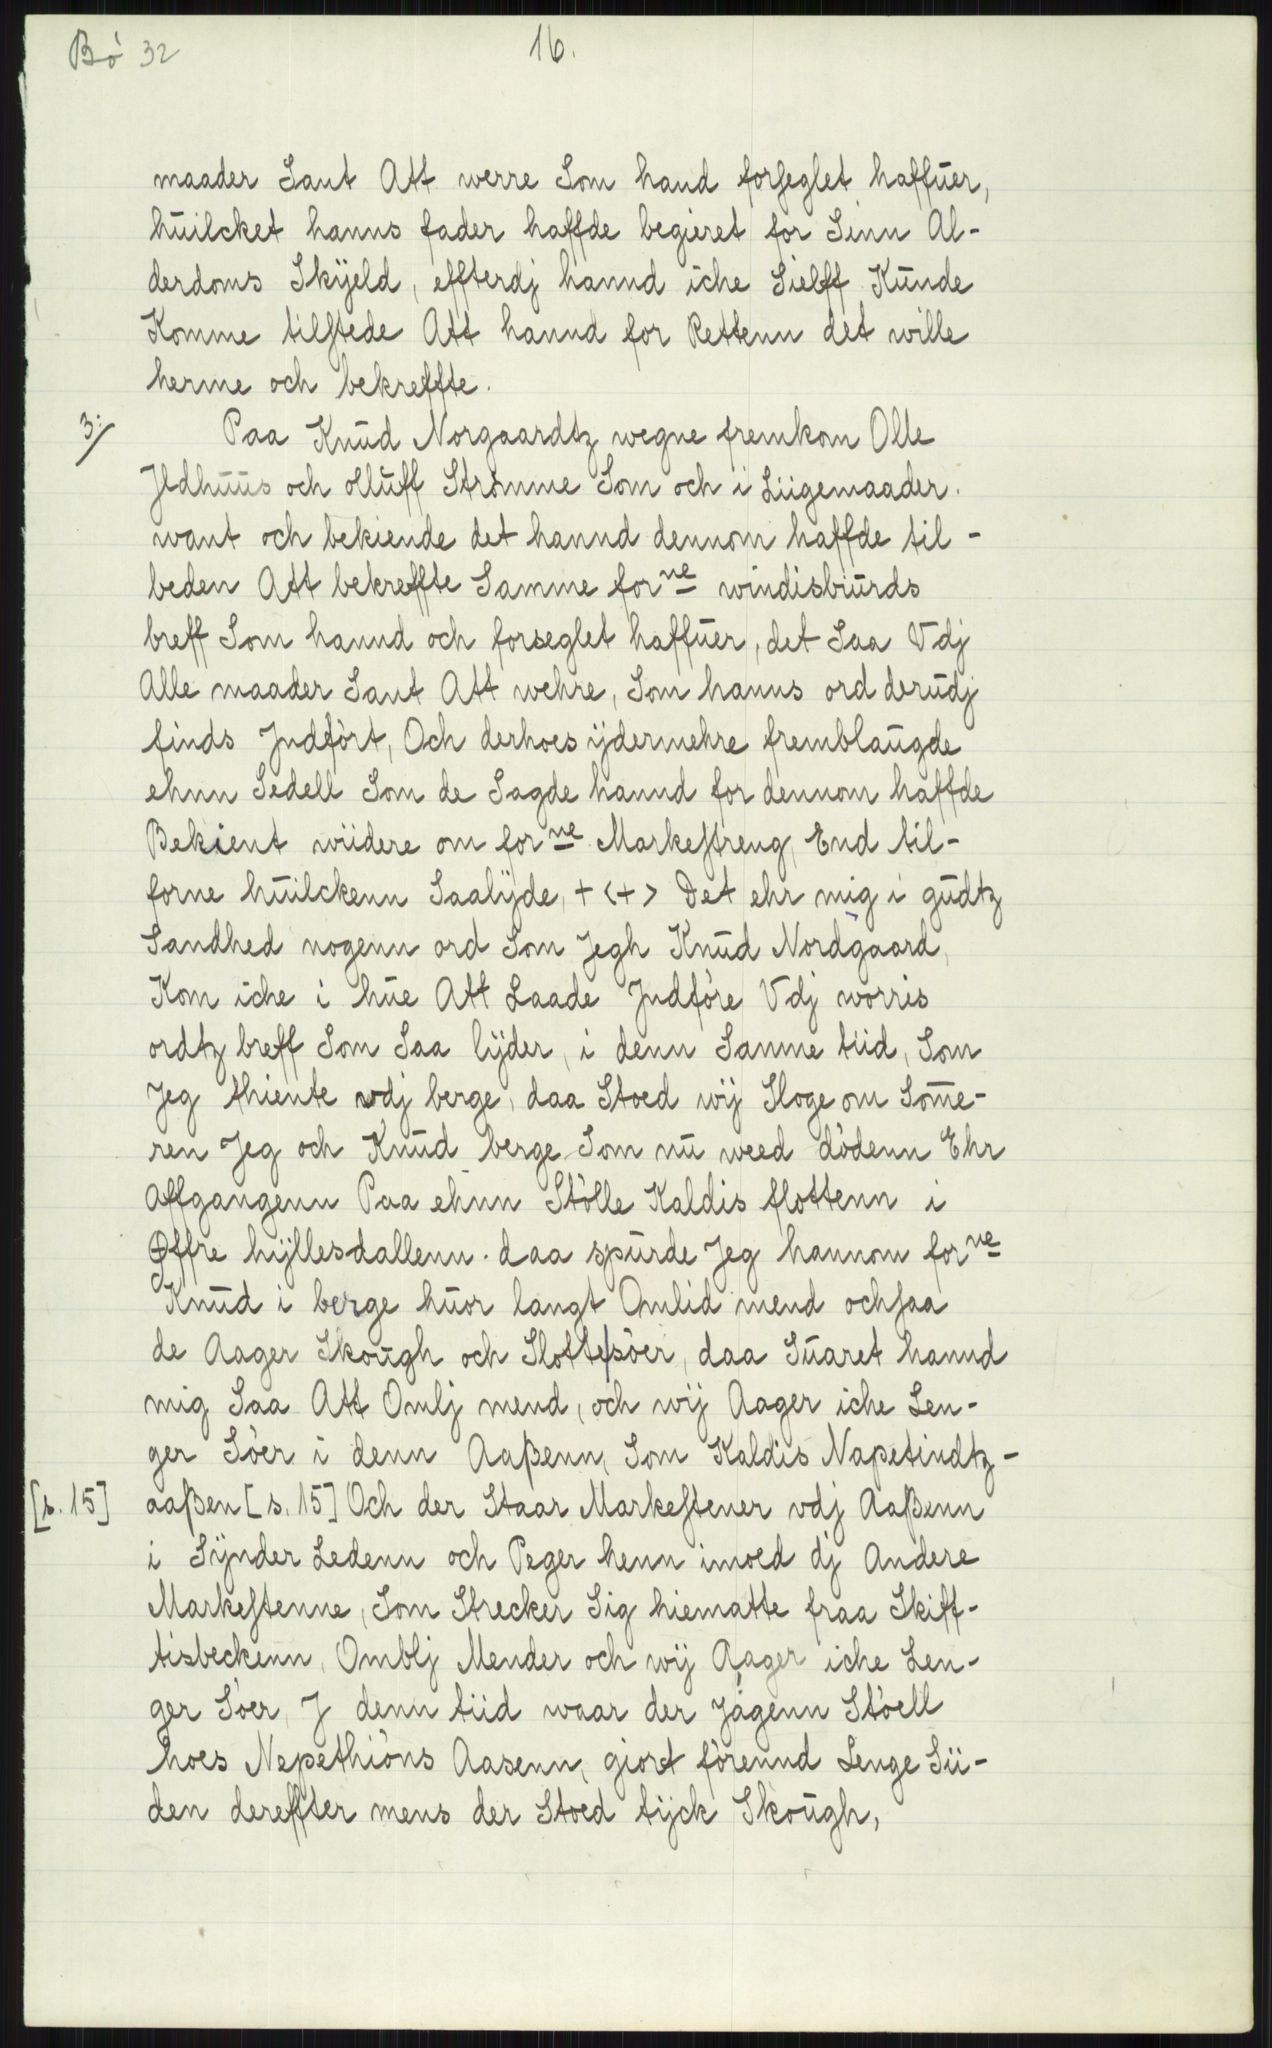 Bò 32
16.
maader Sant Att werre Som hand forseglet haffuer,
huilcket hanns fader haffde begieret for Sinn Al-
derdoms Skÿeld, effterdj hannd iche Sielff Kunde
Komme tilstede Att hannd for Rettenn det wille
herme och bekreffte.
3:/ Paa Knud Norgaardtz wegne fremkom Olle
Jldhuus och olluff Strømme Som och i Liigemaader.
want och bekiende det hannd dennom haffde til-
beden Att bekreffte Samme forne windisbiurds
breff Som hannd och forseglet haffuer, det Saa Vdj
Alle maader Sant Att wehre, Som hanns ord derudj
finds Jndfòrt, Och derhoes ÿdermehre fremblaugde
ehnn Sedell Som de Sagde hannd for dennom haffde
Bekient wiidere om forne Markestreng, End til-
forne huilckenn Saalÿde, + <+> Det ehr mig i gudtz
Sandhed nogenn ord Som Jegh Knud Nordgaard,
Kom iche i hue Att Laade Jndfòre Vdj worris
ordtz breff Som Saa lÿder, i denn Samme tiid, Som
Jeg thiente vdj berge, daa Stoed wÿ Sloge om Som̄e-
ren Jeg och Knud berge Som nu weed dòdenn Ehr
Affgangenn Paa ehnn Stòlle Kaldis flottenn i
Øffre hÿllesdallenn. daa spurde Jeg hannom forne
Knud i berge huor langt Omlid mend ochsaa
de Aager Skough och Slottesòer, daa Suaret hannd
mig Saa Att Omlj mend, och wÿ Aager iche Len-
ger Sòer i denn Aaßenn, Som Kaldis Napetindtz-
[s. 15] aaßen [s. 15] Och der Staar Markestener vdj Aaßenn
i Sÿnder Ledenn och Peger henn imoed dj Andere
Markestenne, Som Strecker Sig hiematte fraa Skiff-
tisbeckenn, Omblj Mender och wÿ Aager iche Len-
ger Sòer, J denn tiid waar der Jngenn Stòell
hoes Nepethiòns Aasenn, giort fòrennd Lenge Sii-
den dereffter mens der Stoed tÿck Skough,